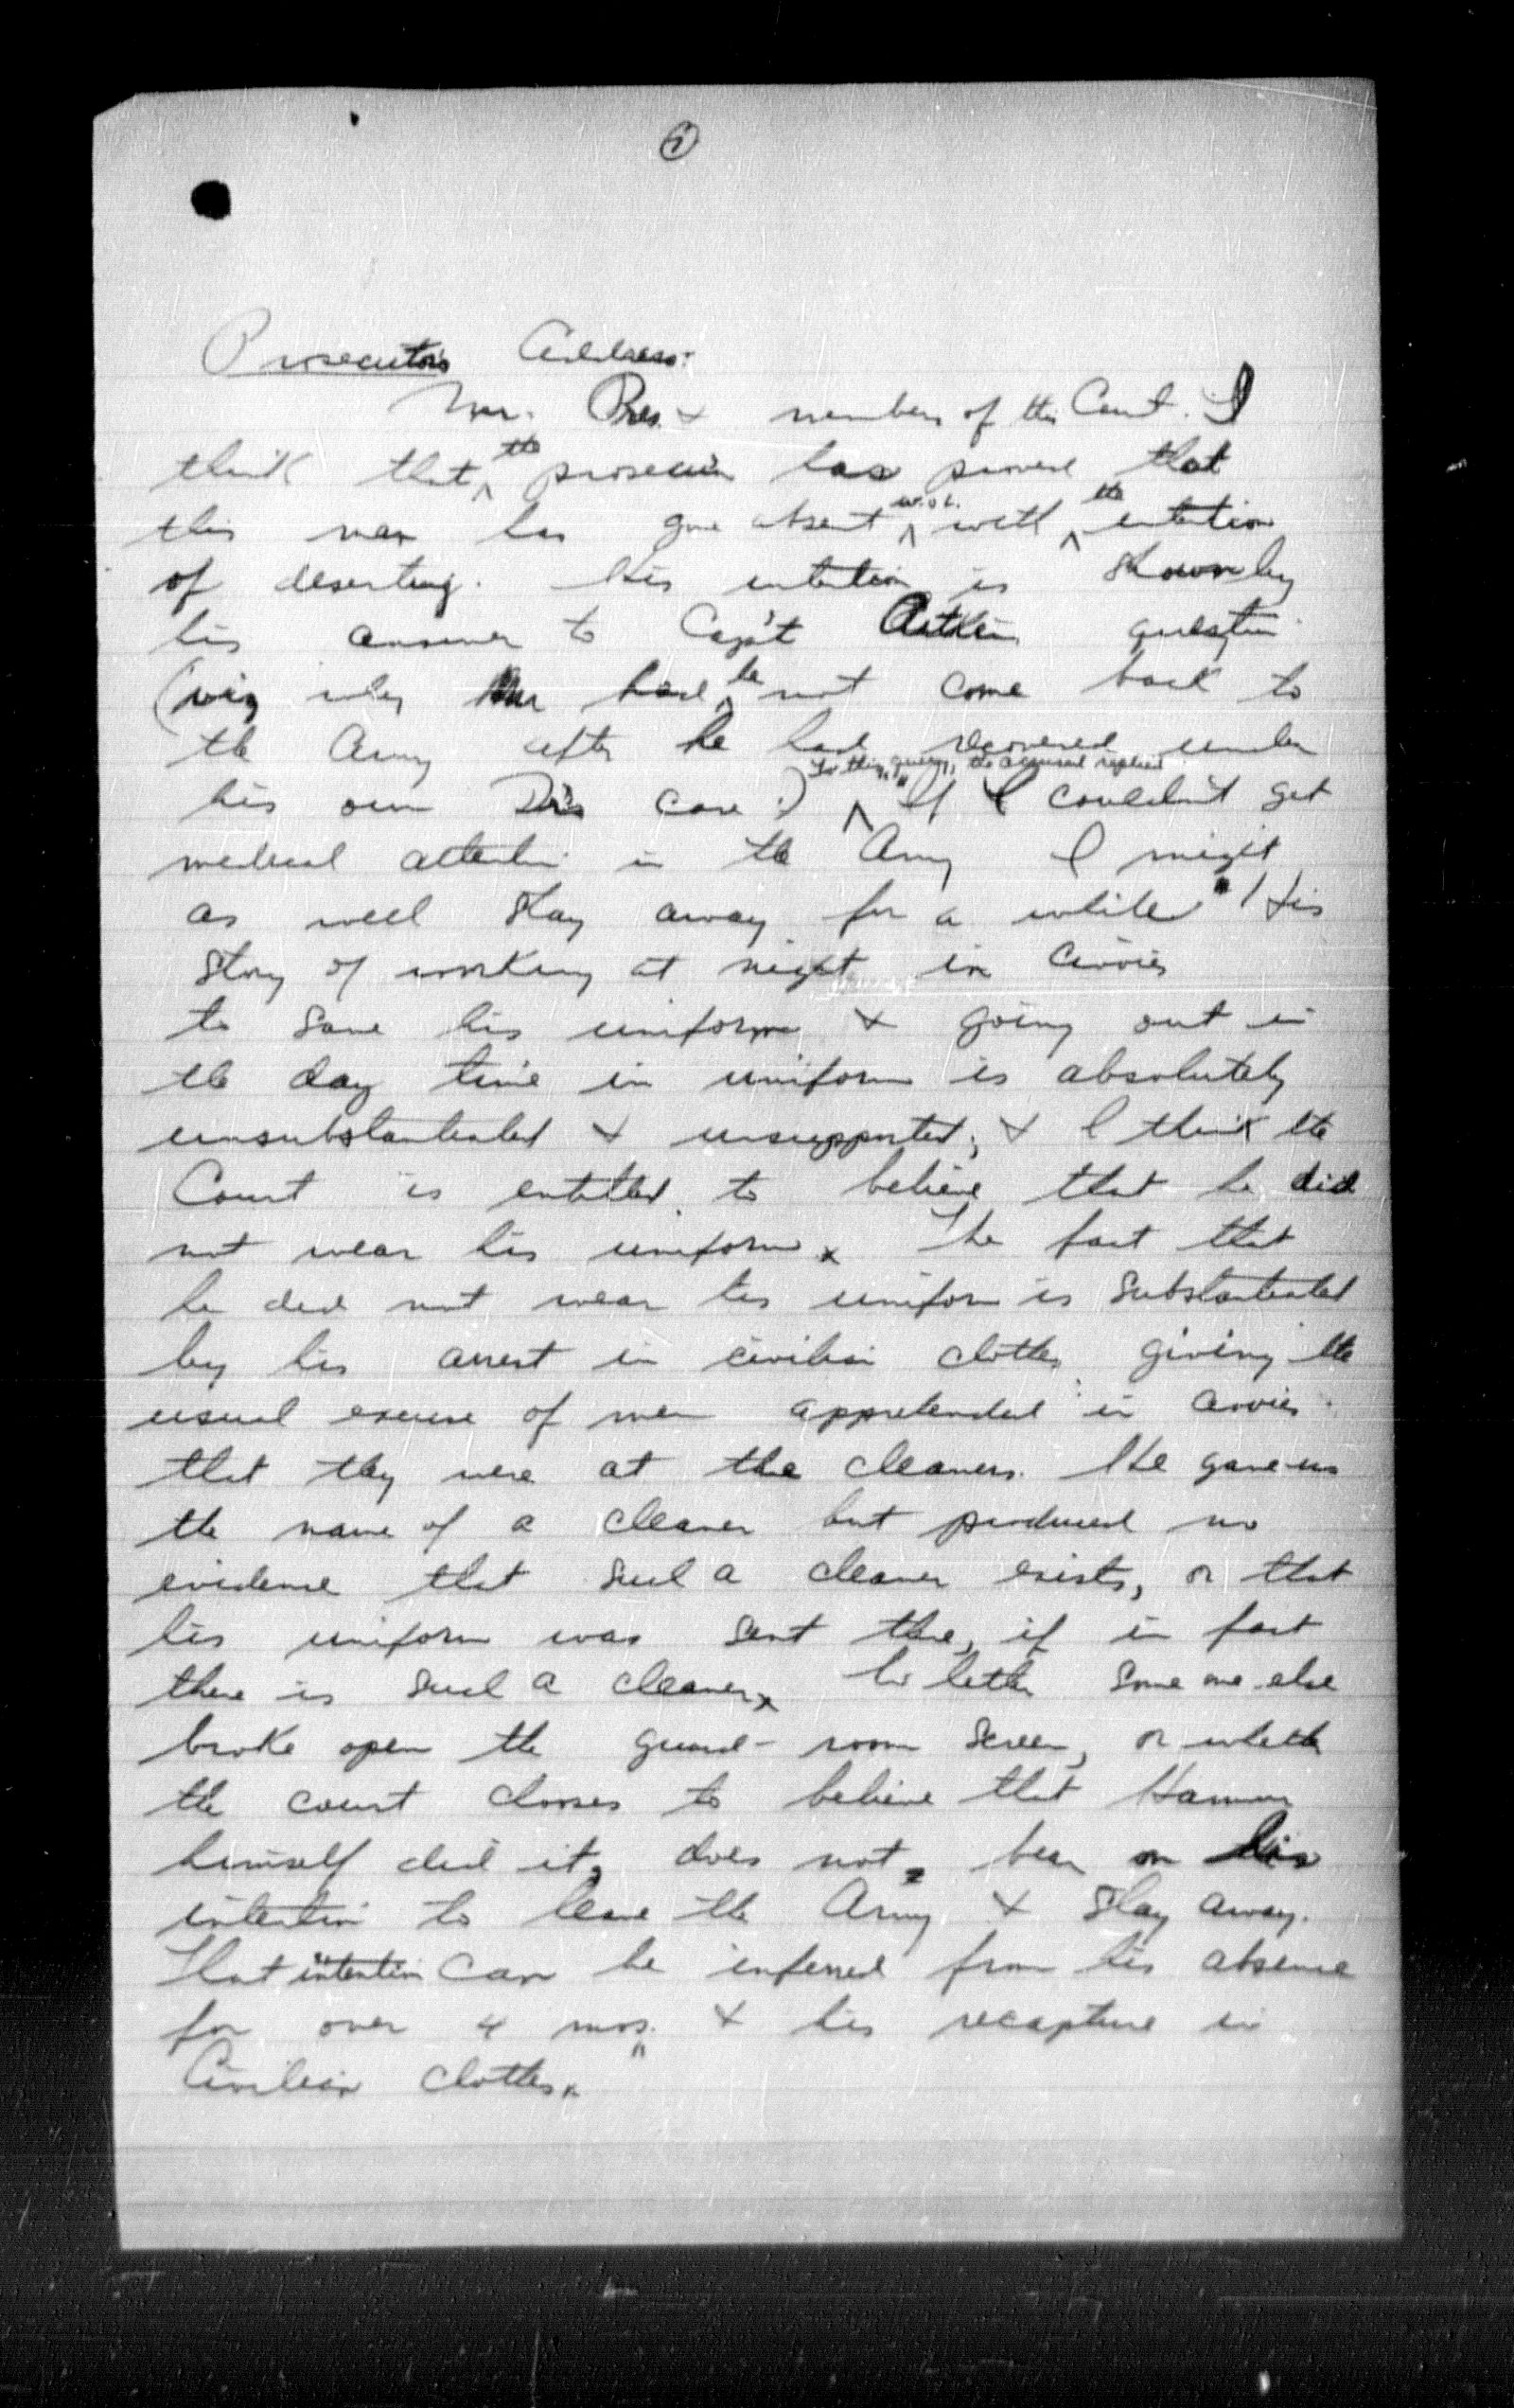 Prosecutor's Address:
Mr. Pres. & members of the Court. I
think that the prosecution has proved that
this man has gone absent w.o.l. with the intention
of deserting. His intention is shown by
his answer to Cap't Aitken question
(viz why had he not come back to
the Army after he had recovered under
his own Dr's care?) To this query, the accused replied "If I couldn't get
medical attention in the Army I might
as well stay away for a while" His
story of working at night in civvies
to save his uniform & going out in
the day time in uniform is absolutely
unsubstantiated & unsupported, & I think the
Court is entitled to believe that he did
not wear his uniform. The fact that
he did not wear his uniform is substantiated
by his arrest in civilian clothes giving the
usual excuse of men apprehended in civvies
that they were at the cleaners. He gave us
the name of a cleaner but produced no
evidence that such a cleaner exists, or that
his uniform was sent there, if in fact
there is such a cleaner. Whether some one else
broke open the guard-room screen, or whether
the court chooses to believe that
himself did it, does not, bear on his
intention to leave the Army & stay away.
That intention can be inferred from his absence
for over 4 mos. & his recapture in
Civilian clothes.